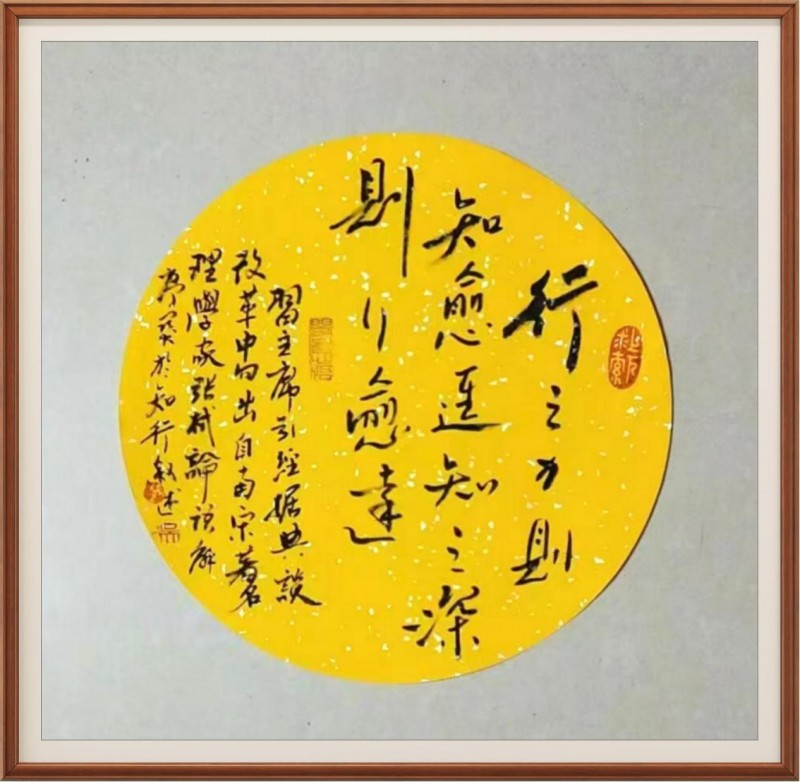 上下求索
行之力則
知愈進知之深
則行愈達
習主席引經據典談
改革中句出自南宋著名
理學家張栻論語解
於知行敘述